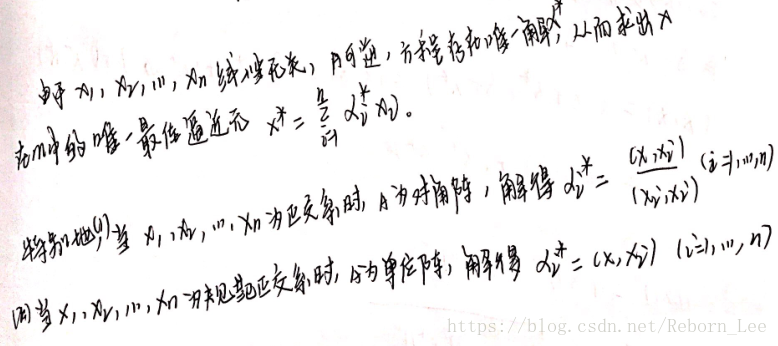 由于 x₁, x₂, …, xₙ 线性无关, A可逆, 方程存在唯一解α*, 从而求出 x
在M中的唯一最佳逼近元 x* = Σᵢ₌₁ⁿ αᵢ* xᵢ。
特别地,(1)当 x₁, x₂, …, xₙ 为正交系时, A为对角阵, 解得 αᵢ* = (x, xᵢ)/(xᵢ, xᵢ) (i=1,…,n)
(2)当 x₁, x₂, …, xₙ 为规范正交系时, A为单位阵, 解得 αᵢ* = (x, xᵢ) (i=1,…,n)
https://blog.csdn.net/Reborn_Lee